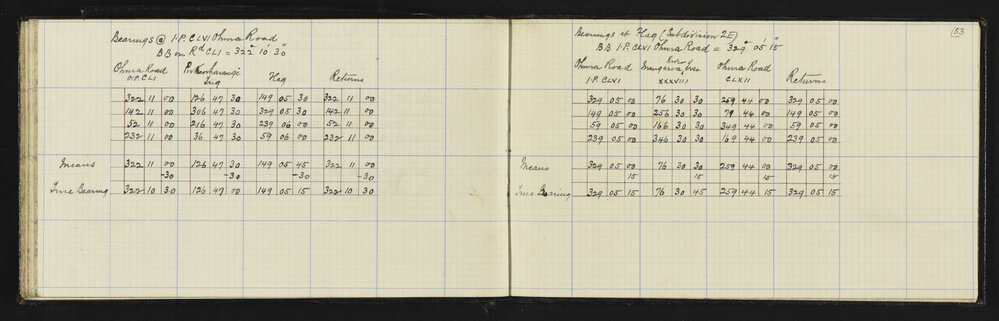 Bearings @ I.P. CLVI Ohura Road
BB on Rd CLI = 322° 10' 30"
Ohura Road Trig Hag Returns
O.P. CLI
322 11 00 126 47 30 149 05 30 322 11 00
142 11 00 306 47 30 329 05 30 142 11 00
52 11 00 216 47 30 239 06 00 52 11 00
232 11 00 36 47 30 59 06 00 232 11 00
Means 322 11 00 126 47 30 149 05 45 322 11 00
-30 -30 -30 -30
True Bearing 322 10 30 126 47 00 149 05 15 322 10 30
53
Bearings at Hag (Subdivision 2E)
BB I.P. CLVI Ohura Road = 329° 05' 15"
Ohura Road Mangaroa Tree Ohura Road Returns
I.P. CLVI XXXVIII CLXII
329 05 00 76 30 30 259 44 00 329 05 00
149 05 00 256 30 30 79 44 00 149 05 00
59 05 00 166 30 30 349 44 00 59 05 00
239 05 00 346 30 30 169 44 00 239 05 00
Means 329 05 00 76 30 30 259 44 00 329 05 00
15 15 15 15
True Bearing 329 05 15 76 30 45 259 44 15 329 05 15